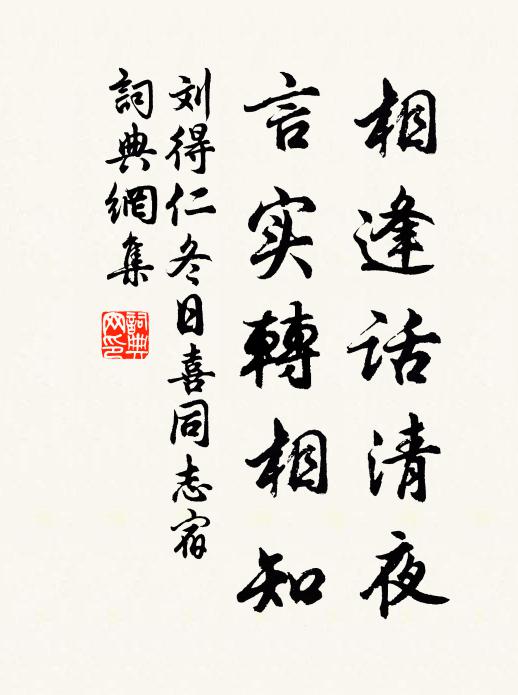 相逢话清夜
言实轉相知
刘得仁冬日喜同志宿
詞典網集
詞典
网印